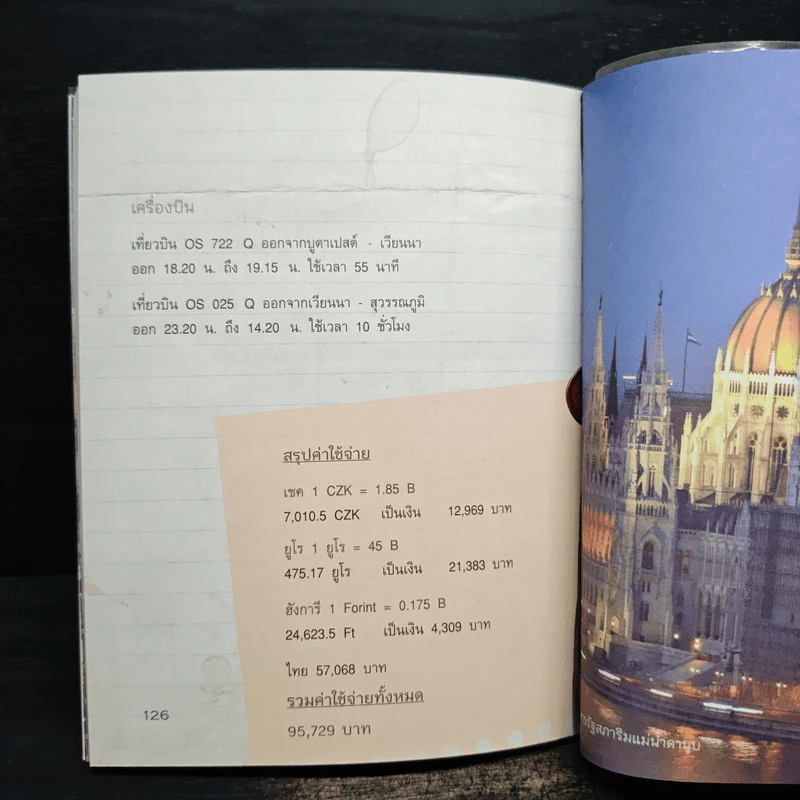 เครื่องบิน
เที่ยวบิน OS 722 Q ออกจากบูดาเปสต์ - เวียนนา
ออก 18.20 น. ถึง 19.15 น. ใช้เวลา 55 นาที
เที่ยวบิน OS 025 Q ออกจากเวียนนา - สุวรรณภูมิ
ออก 23.20 น. ถึง 14.20 น. ใช้เวลา 10 ชั่วโมง
สรุปค่าใช้จ่าย
เชค 1 CZK = 1.85 B
7,010.5 CZK เป็นเงิน 12,969 บาท
ยูโร 1 ยูโร = 45 B
475.17 ยูโร เป็นเงิน 21,383 บาท
ฮังการี 1 Forint = 0.175 B
24,623.5 Ft เป็นเงิน 4,309 บาท
ไทย 57,068 บาท
รวมค่าใช้จ่ายทั้งหมด
95,729 บาท
126
รัฐสภาริมแม่น้ำดานูบ